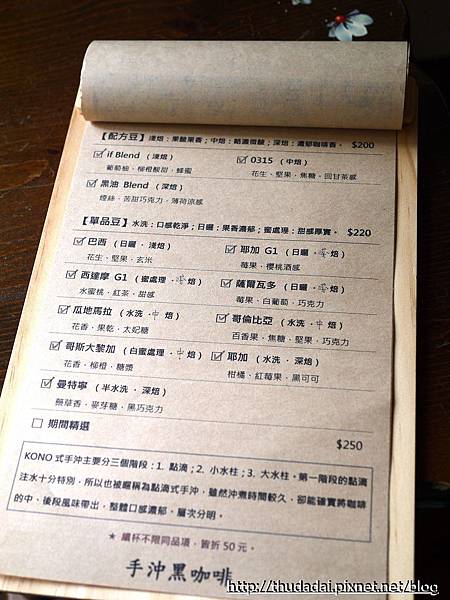 【配方豆】淺焙：果酸果香；中焙：略濃微酸；深焙：濃郁咖啡香。 $200
if Blend （淺焙）
葡萄柚、柳橙酸甜、蜂蜜
0315 （中焙）
花生、堅果、焦糖、回甘茶感
黑油 Blend （深焙）
煙絲、苦甜巧克力、薄荷涼感
【單品豆】水洗：口感乾淨；日曬：果香濃郁；蜜處理：甜感厚實。 $220
巴西（日曬．淺焙）
花生、堅果、玄米
耶加 G1（日曬．淺焙）
莓果、櫻桃酒感
西達摩 G1（蜜處理．淺焙）
水蜜桃、紅茶、甜感
薩爾瓦多（日曬．淺焙）
莓果、白葡萄、巧克力
瓜地馬拉（水洗．中焙）
花香、果乾、太妃糖
哥倫比亞（水洗．中焙）
百香果、焦糖、堅果、巧克力
哥斯大黎加（白蜜處理．中焙）
花香、柳橙、糖漿
耶加（水洗．深焙）
柑橘、紅莓果、黑可可
曼特寧（半水洗．深焙）
藥草香、麥芽糖、黑巧克力
期間精選
$250
KONO 式手沖主要分三個階段：1. 點滴；2. 小水柱；3. 大水柱。第一階段的點滴
注水十分特別，所以也被暱稱為點滴式手沖，雖然沖煮時間較久，卻能確實將咖啡
的中、後段風味帶出，整體口感濃郁、層次分明。
★ 續杯不限同品項，皆折 50 元。
手沖黑咖啡
http://thudadai.pixnet.net/blog